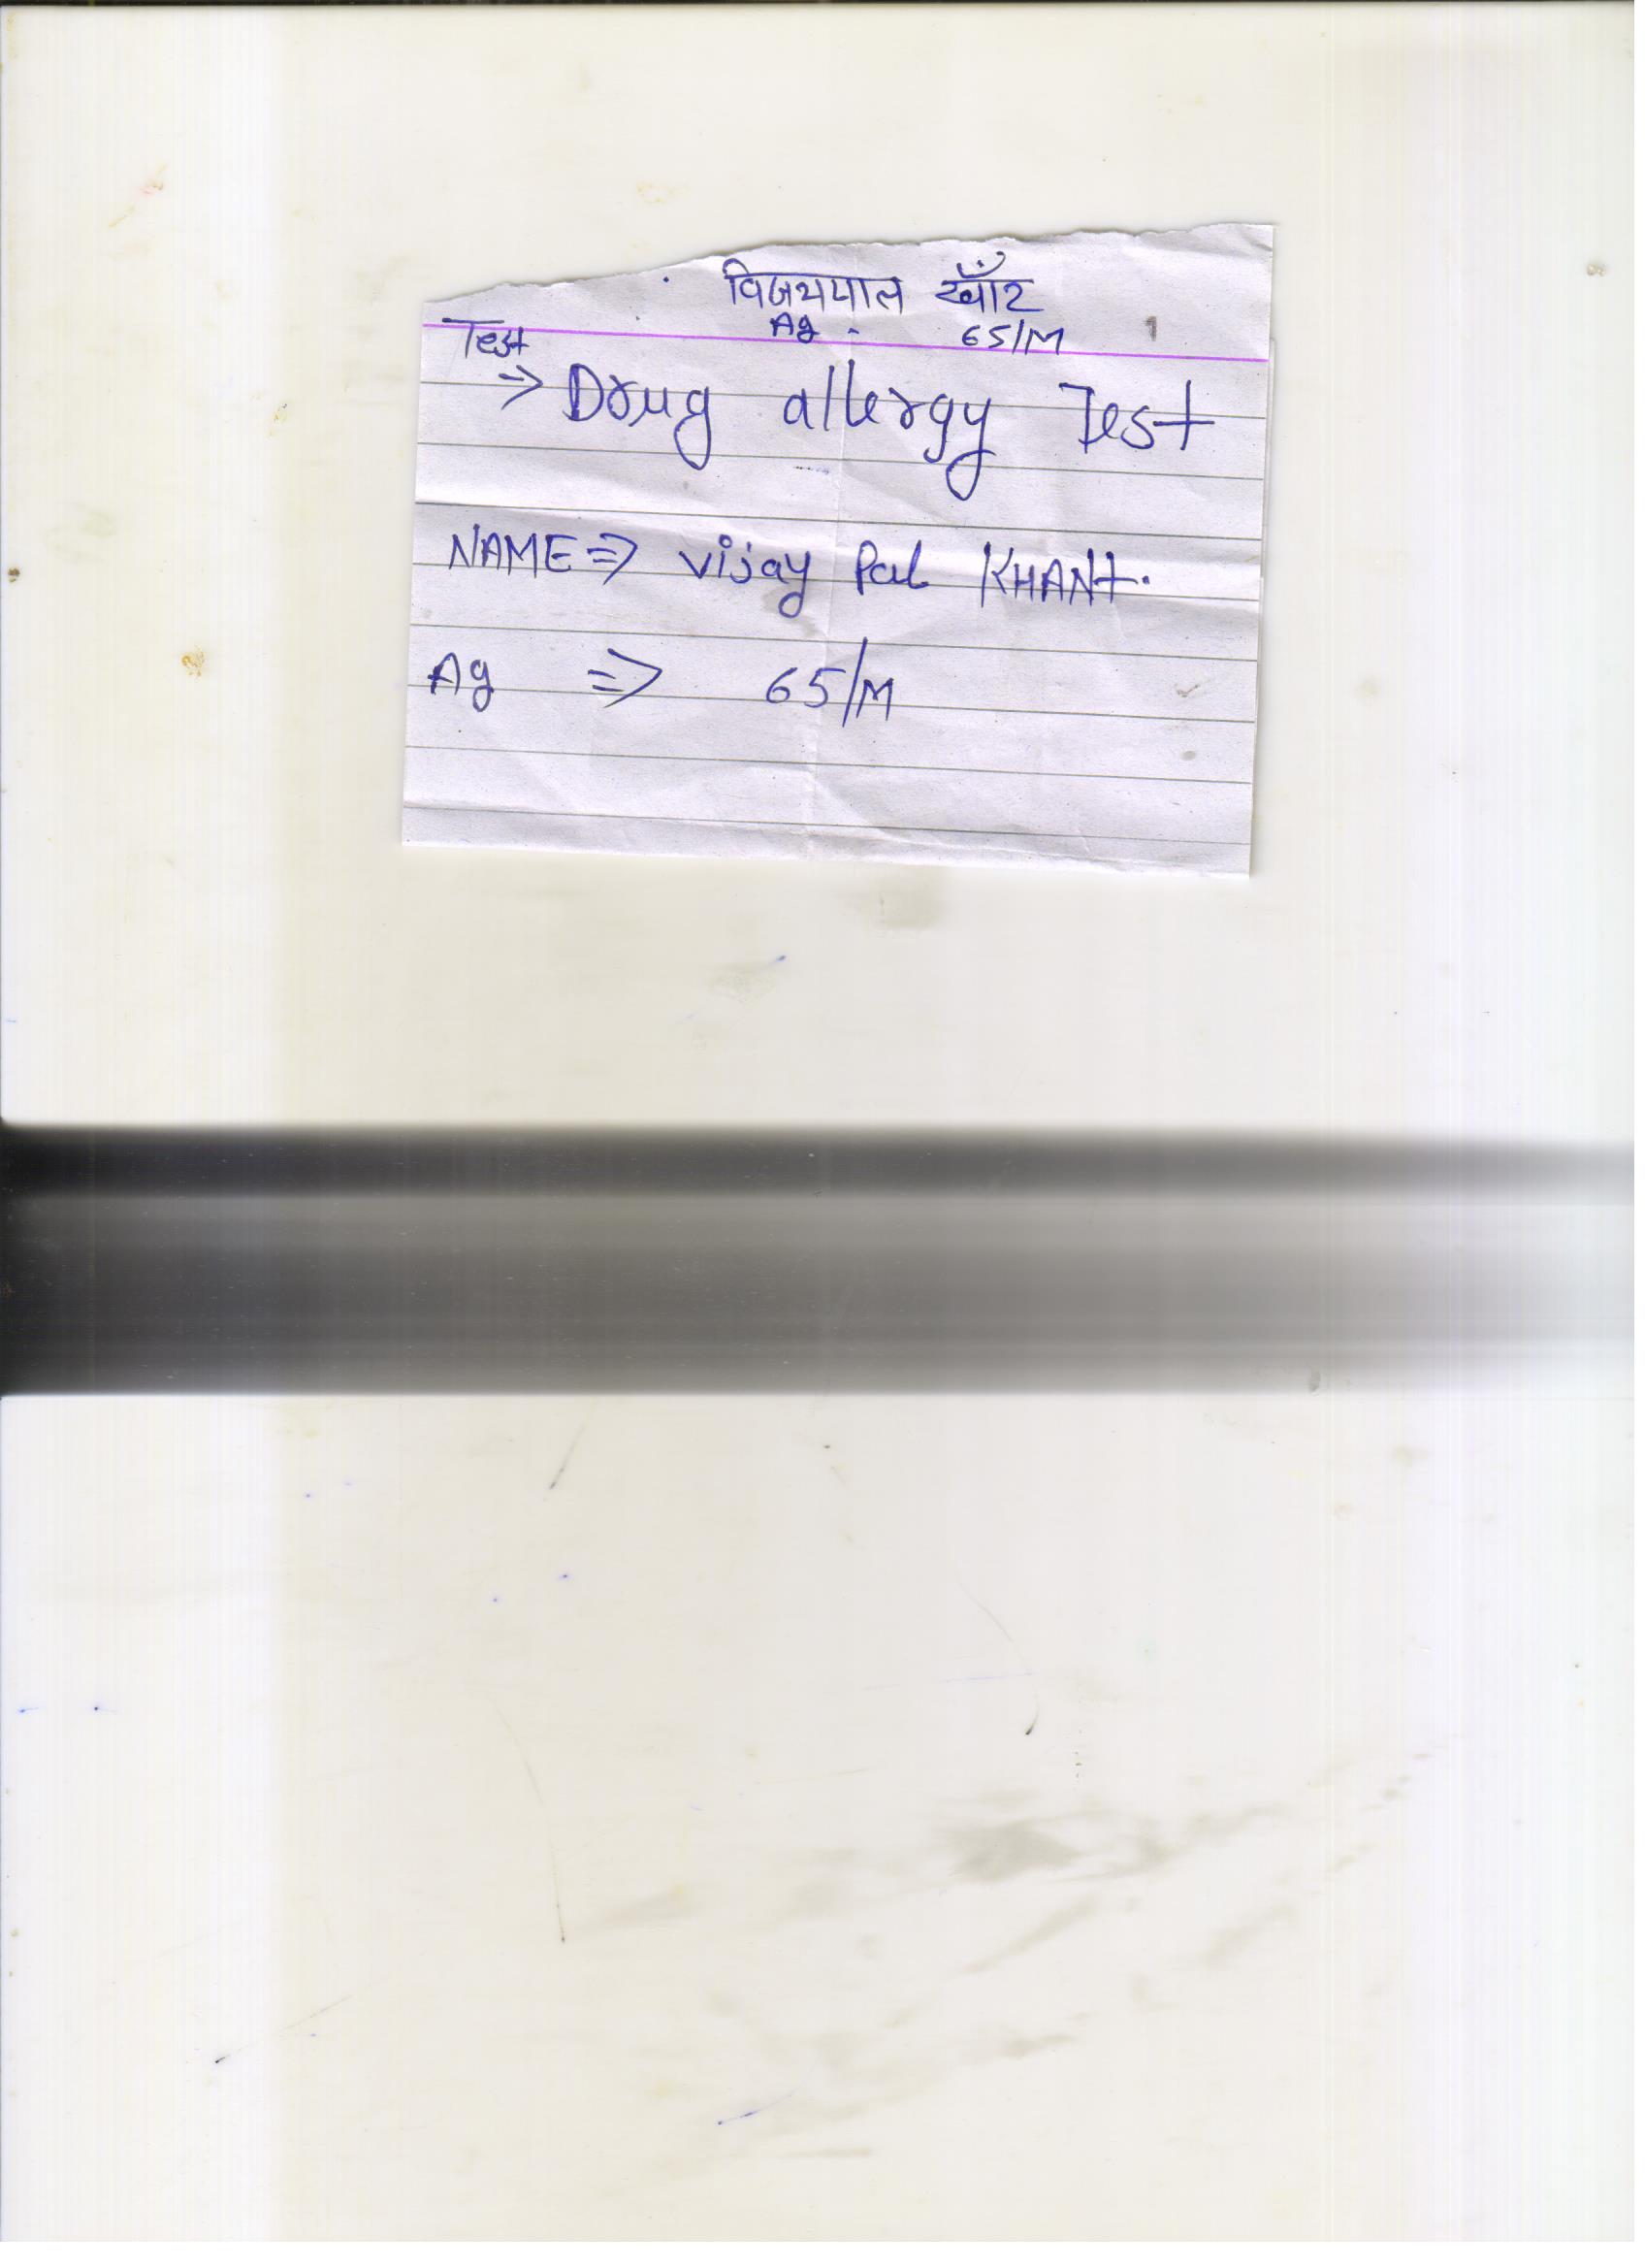 विजयपाल खाँट
Ag - 65/M
Test
=> Drug allergy Test
NAME => Vijay Pal KHANt.
Ag => 65/M